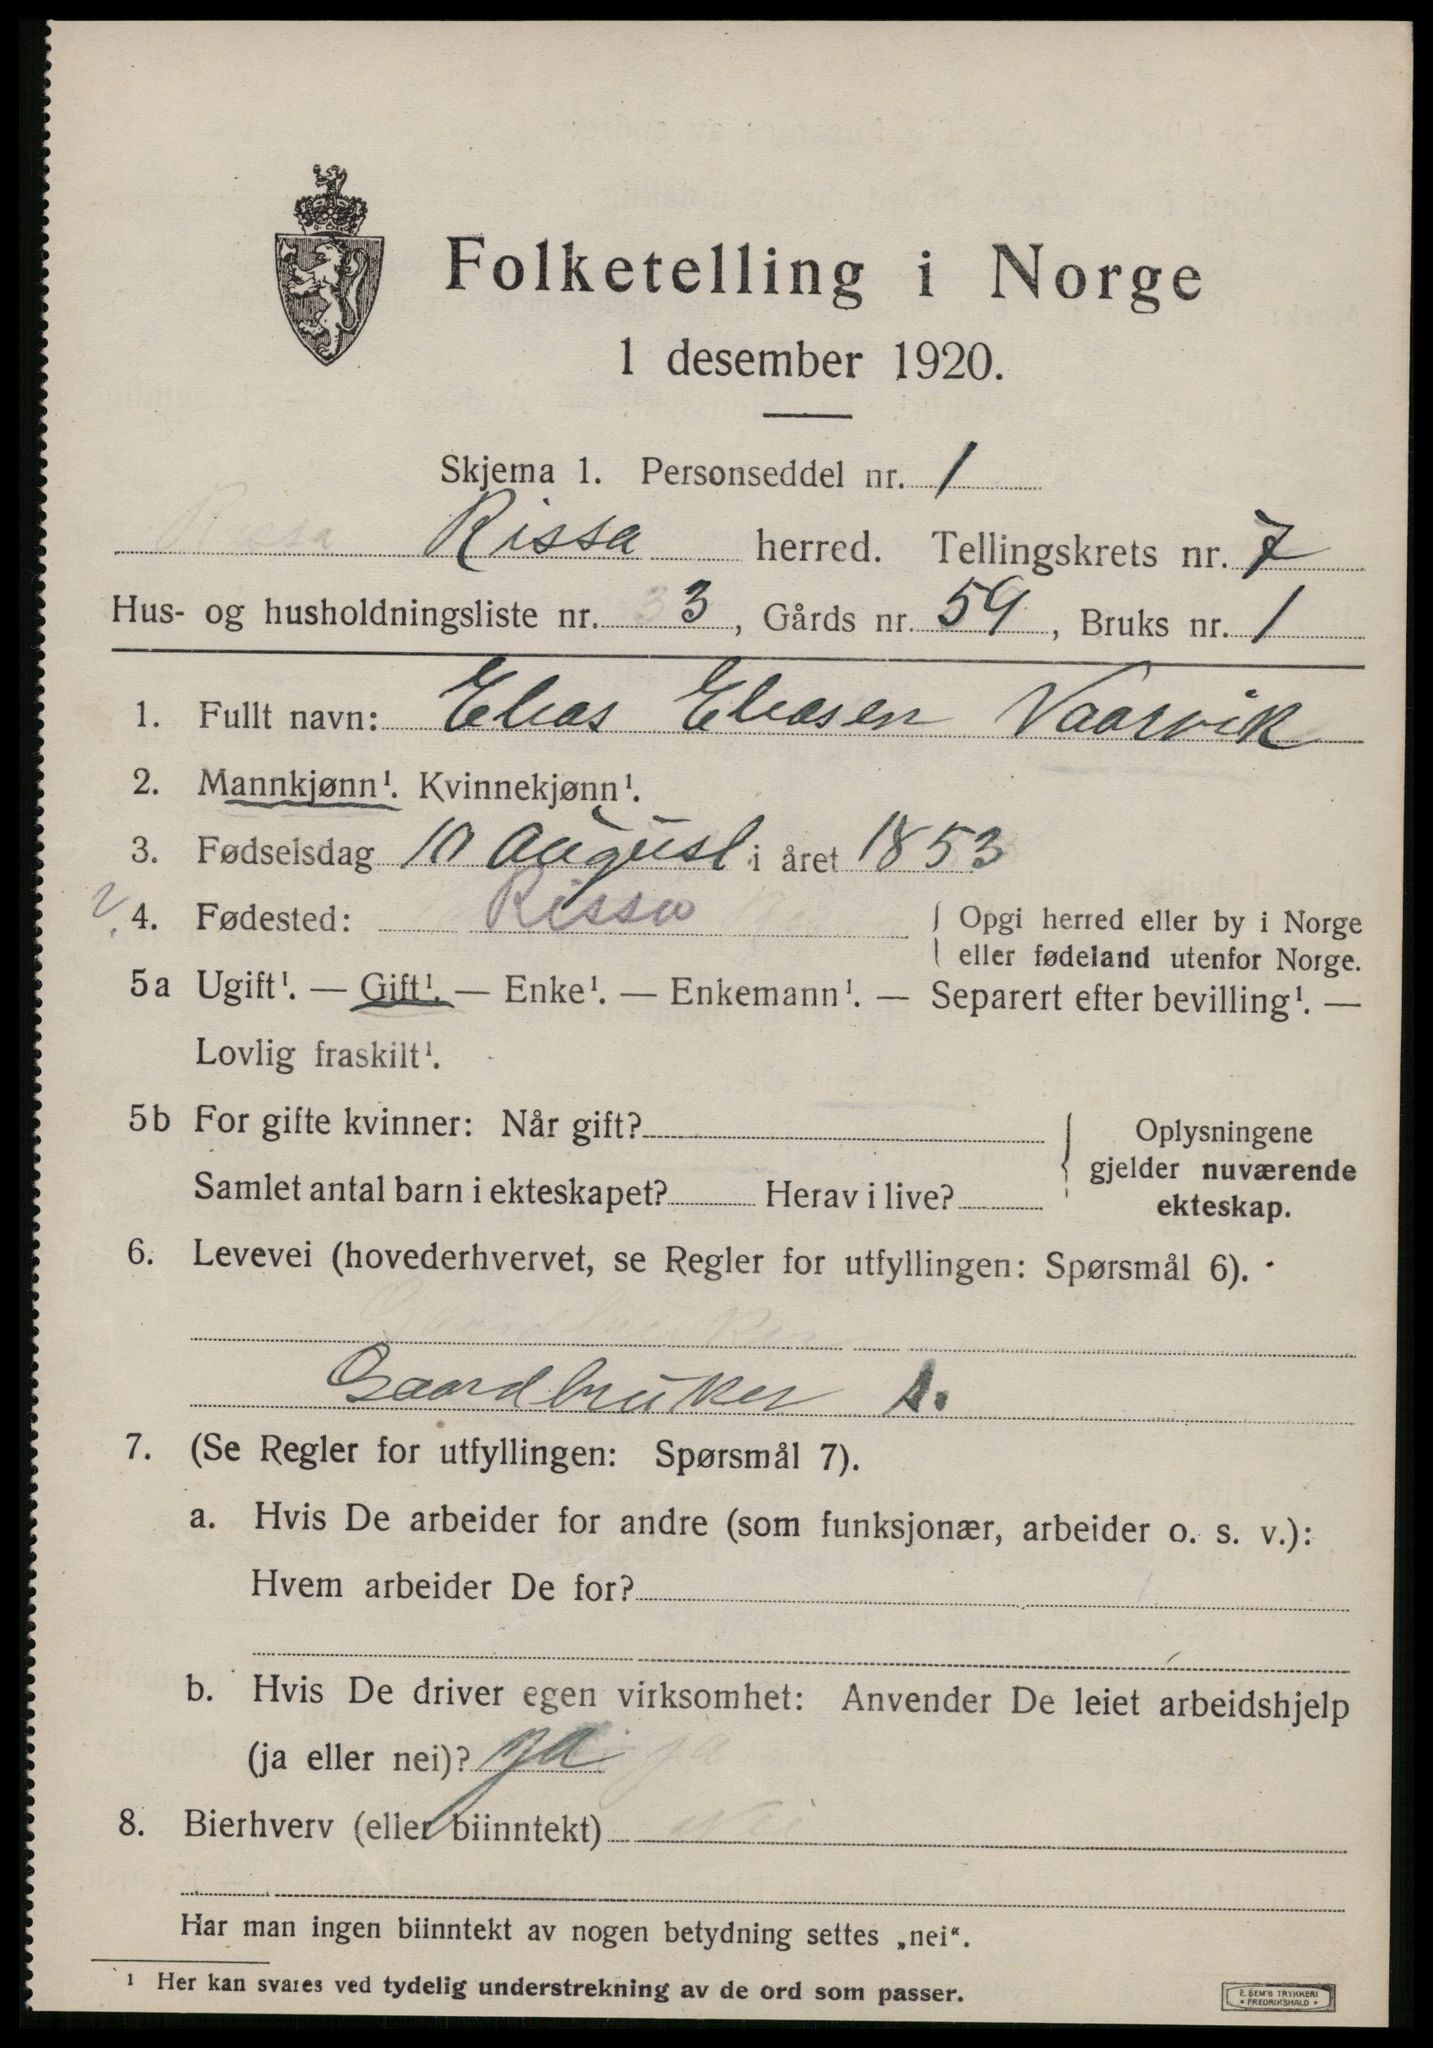 Folketelling i Norge
1 desember 1920.
Skjema 1. Personseddel nr. 1
Rissa Rissa herred. Tellingskrets nr. 7
Hus- og husholdningsliste nr. 3 3, Gårds nr. 59, Bruks nr. 1
1. Fullt navn: Elias Eliasen Vaarvik
2. Mannkjønn¹. Kvinnekjønn¹.
3. Fødselsdag 10 August i året 1853
4. Fødested: Rissa { Opgi herred eller by i Norge
eller fødeland utenfor Norge.
5a Ugift¹. — Gift¹. — Enke¹. — Enkemann¹. — Separert efter bevilling¹. —
Lovlig fraskilt¹.
5b For gifte kvinner: Når gift?
Samlet antal barn i ekteskapet? Herav i live?
Oplysningene
gjelder nuværende
ekteskap.
6. Levevei (hovederhvervet, se Regler for utfyllingen: Spørsmål 6).
Gaardbruker
Gaardbruker s.
7. (Se Regler for utfyllingen: Spørsmål 7).
a. Hvis De arbeider for andre (som funksjonær, arbeider o. s. v.):
Hvem arbeider De for?
b. Hvis De driver egen virksomhet: Anvender De leiet arbeidshjelp
(ja eller nei)? ja ja
8. Bierhverv (eller biinntekt) Nei
Har man ingen biinntekt av nogen betydning settes „nei“.
¹ Her kan svares ved tydelig understrekning av de ord som passer.
E. SEM'S TRYKKERI
• FREDRIKSHALD •